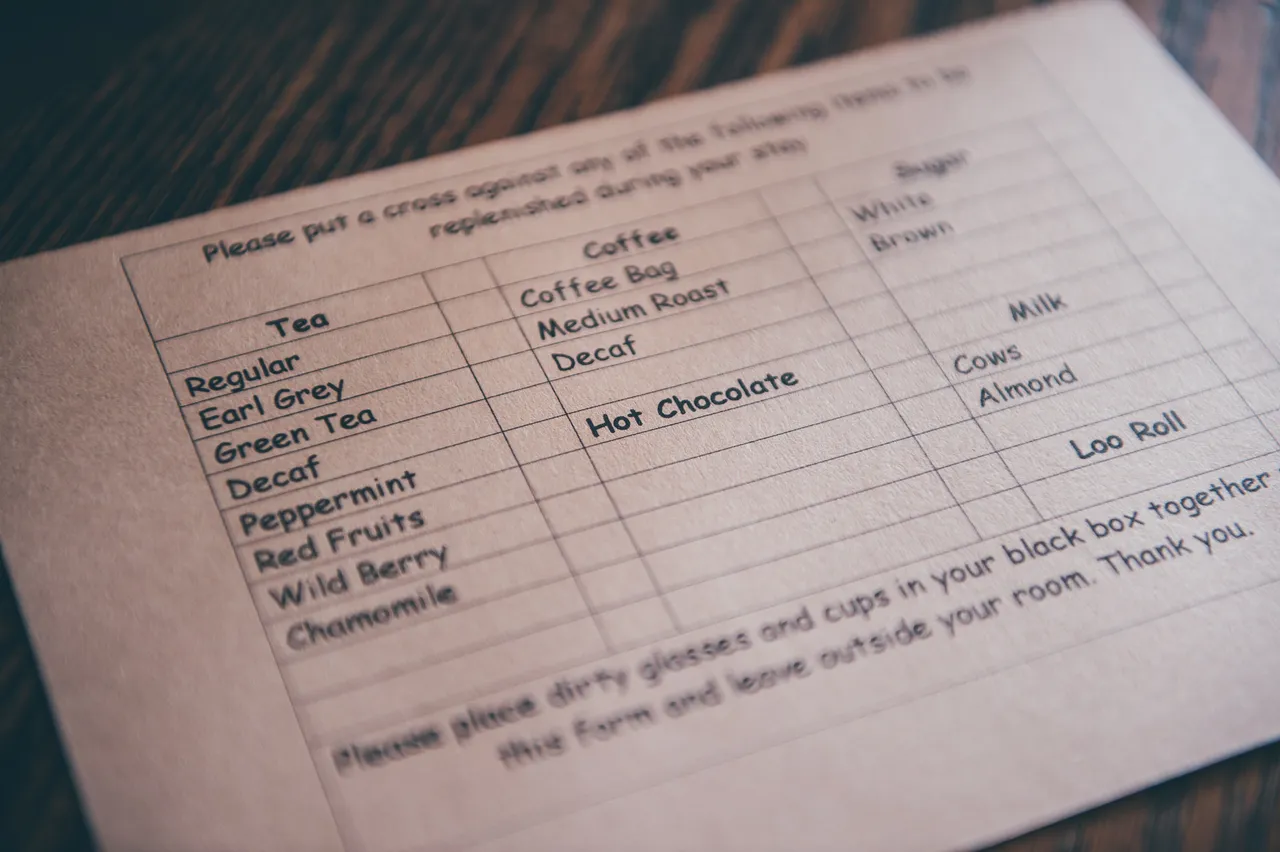 Please put a cross against any of the following items to be
replenished during your stay
Tea
Regular
Earl Grey
Green Tea
Decaf
Peppermint
Red Fruits
Wild Berry
Chamomile
Coffee
Coffee Bag
Medium Roast
Decaf
Hot Chocolate
Sugar
White
Brown
Milk
Cows
Almond
Loo Roll
Please place dirty glasses and cups in your black box together
this form and leave outside your room. Thank you.